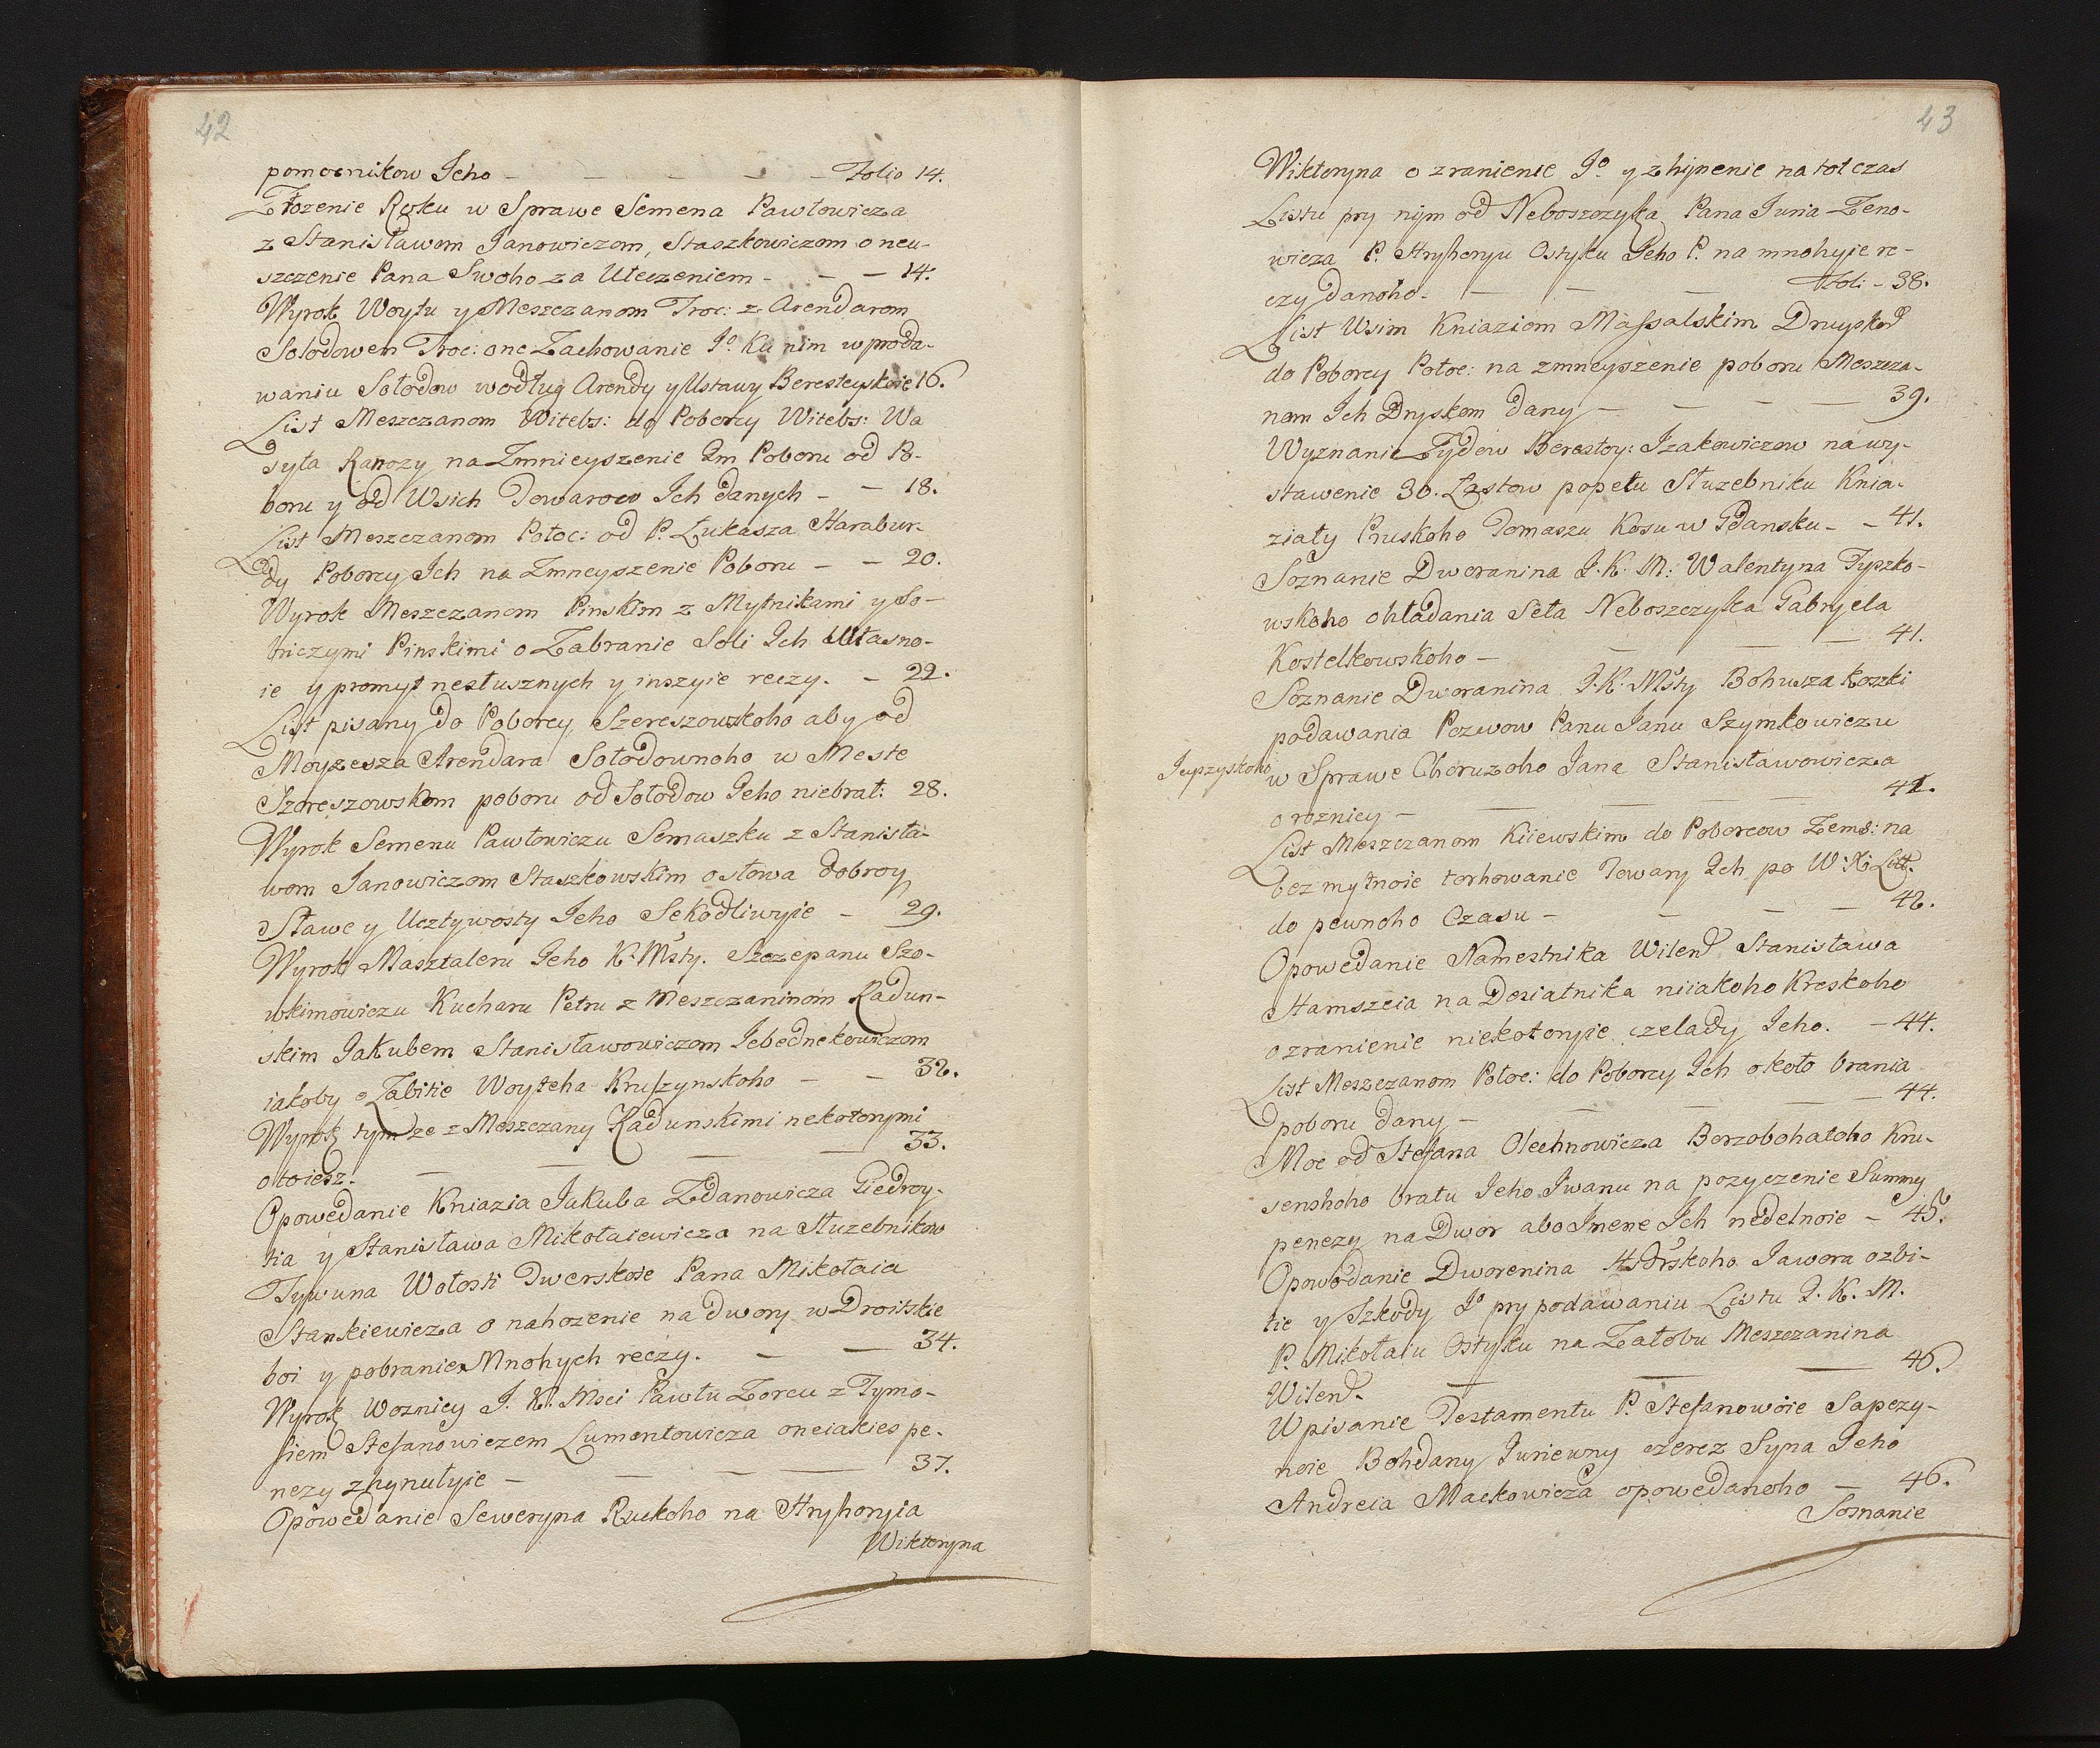 42
pomocnikow Jeho - - - - - Folio 14.
Złozenie Roku w Sprawe Semena Pawłowicza
z Stanisławom Janowiczom, Staszkowiczom o neu-
szczenie Pana Swoho za Uteczeniem - - - 14.
Wyrok Woytu y Meszczanom Troc: z Arendarom
Sołodowem Troc: o ne Zachowanie Jo. Ku nim w proda-
waniu Sołodow wodług Arendy y Ustawy Beresteyskoie 16.
List Meszczanom Witebs: do Poborcy Witebs: Wa
syła Rapozy na Zmnieyszenie Im Poboru od Po-
boru y od Wsich Towarow Ich danych - - 18.
List Meszczanom Połoc: od P. Łukasza Harabur-
dy Poborcy Ich na Zmneyszenie Poboru - - 20.
Wyrok Meszczanom Pinskim z Mytnikami y So-
lniczymi Pinskimi o Zabranie Soli Ich Własno-
ie y promyt nesłusznych y inszyie reczy. - 22.
List pisany do Poborcy Szereszowskoho aby od
Moyzesza Arendara Sołodownoho w Meste
Szereszowskom poboru od Sołodow Jeho niebrał: 28.
Wyrok Semenu Pawłowiczu Semaszku z Stanisła-
wom Janowiczom Staszkowskim o słowa dobroy
Sławe y Ucztywosty Jeho Sekodliwyie - 29.
Wyrok Masztaleru Jeho K. Msty. Szczepanu Szo-
wkimowiczu Kucharu Petru z Meszczaninom Radun-
skim Jakubem Stanisławowiczom Jebednekowiczom
iakoby o Zabitie Woyteha Kruszynskoho - - 32.
Wyrok tym ze z Meszczany Radunskimi nekotorymi
o toiesz. - - - - 33.
Opowedanie Kniazia Jakuba Zdanowicza Giedroy-
tia y Stanisława Mikołaiewicza na Słuzebnikow
Tywuna Wołosti Twerskoie Pana Mikołaia
Stankiewicza o nahozenie na dwory w Droitskie
boi y pobranie Mnohych reczy. - - 34.
Wyrok Woznicy J. K. Msci Pawłu Zorcu z Tymo-
fiem Stefanowiczem Lumontowicza o neiakies pe-
nezy zhynułyie - - - - 37.
Opowedanie Seweryna Ruckoho na Hryhoryia
Wiktoryna
43
Wiktoryna o zranienie Jo. y zhynenie na tot czas
Listu pry nym od Neboszczyka Pana Juria Zeno-
wicza P. Hryhoryu Ostyku Jeho P. na mnohyie re-
czy danoho. - - - Foli - 38.
List Wsim Kniaziom Massalskim Druyskod
do Poborcy Połoc: na zmneyszenie poboru Meszcza-
nom Ich Dryskom dany - - - - 39.
Wyznanie Zydow Berestoy: Izakowiczow na wy-
stawenie 30. Łastow popełu Słuzebniku Knia-
ziaty Pruskoho Tomaszu Kosu w Gdansku - - 41.
Soznanie Dworanina J. K. M: Walentyna Tyszko-
wskoho ohladania Seła Neboszczyka Gabryela
Kostelkowskoho - - - 41.
Soznanie Dworanina J. K. Msty Bohusza Koszki
podawania Pozwow Panu Janu Szymkowiczu
Jupzyskoho w Sprawe Choruzoho Jana Stanisławowicza
o roznicy - - - - 42.
List Meszczanom Kiiewskim do Poborcow Zems: na
bez mytnoie torhowanie Towary Ich po W. X. Litt.
do pewnoho Czasu - - - - 42.
Opowedanie Namestnika Wilend Stanisława
Hamszeia na Desiatnika niiakoho Kreskoho
o zranienie niekotoryie czelady Jeho. - 44.
List Meszczanom Połoc: do Poborcy Ich około brania
poboru dany - - - - 44.
Moc od Stefana Olechnowicza Borzobohatoho Kru-
senskoho bratu Jeho Iwanu na pozyczenie Summy
penezy na Dwor abo Imene Ich nedelnoie - 45.
Opowedanie Dworenina Hdrskoho Jawora o zbi-
tie y Szkody Jo pry podawaniu Listu J. K. M.
P. Mikołaiu Ostyku na Załobu Meszczanina
Wilend. - - - 46.
Wpisanie Testamentu P. Stefanowoie Sapezy-
noie Bohdany Juriewny czerez Syna Jeho
Andreia Mackowicza opowedanoho - 46.
Soznanie